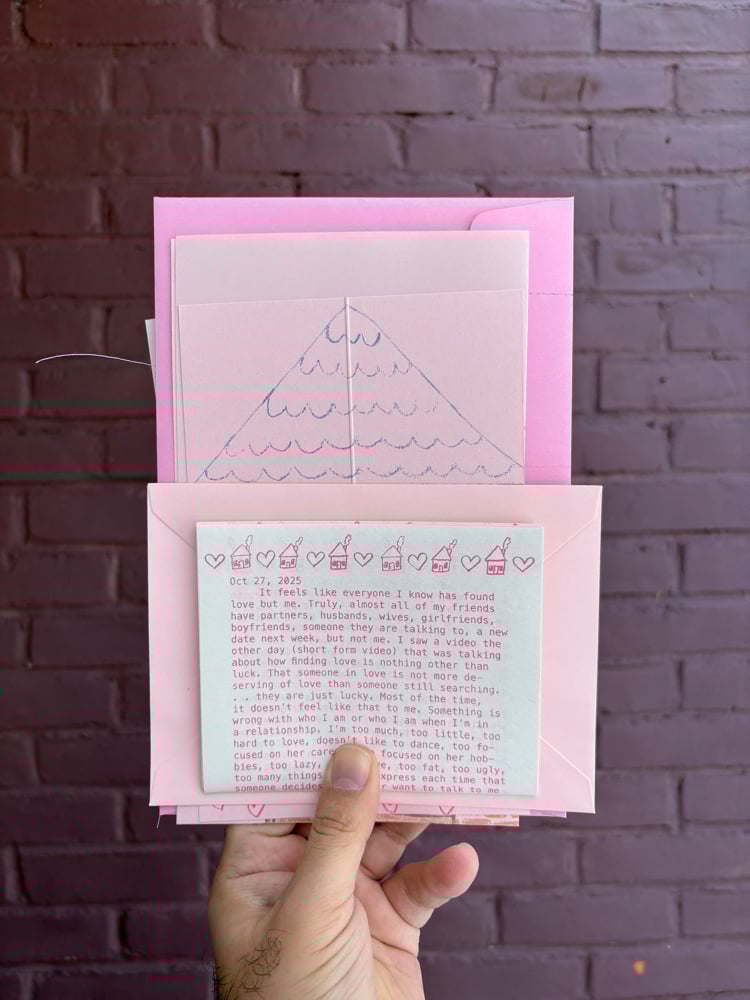 Oct 27, 2025
It feels like everyone I know has found
love but me. Truly, almost all of my friends
have partners, husbands, wives, girlfriends,
boyfriends, someone they are talking to, a new
date next week, but not me. I saw a video the
other day (short form video) that was talking
about how finding love is nothing other than
luck. That someone in love is not more de-
serving of love than someone still searching.
. . they are just lucky. Most of the time,
it doesn't feel like that to me. Something is
wrong with who I am or who I am when I'm in
a relationship. I'm too much, too little, too
hard to love, doesn't like to dance, too fo-
cused on her focused on her hob-
bies, too lazy, too fat, too ugly,
too many things express each time that
someone decides want to talk to me